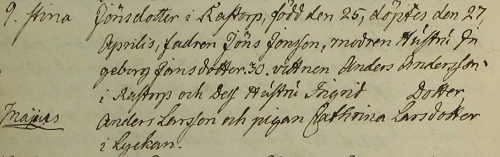 9. Stina Jönsdotter i Kastorp, född den 25, döptes den 27
Aprilis, fadren Jöns Jonsson, modren Hustru In
geborg Jönsdotter. 30. vittnen Anders Andersson
i Kastorp och dess Hustru Ingrid Dotter
Majus Anders Larsson och pigan Cathrina Larsdotter
i Lyckan.